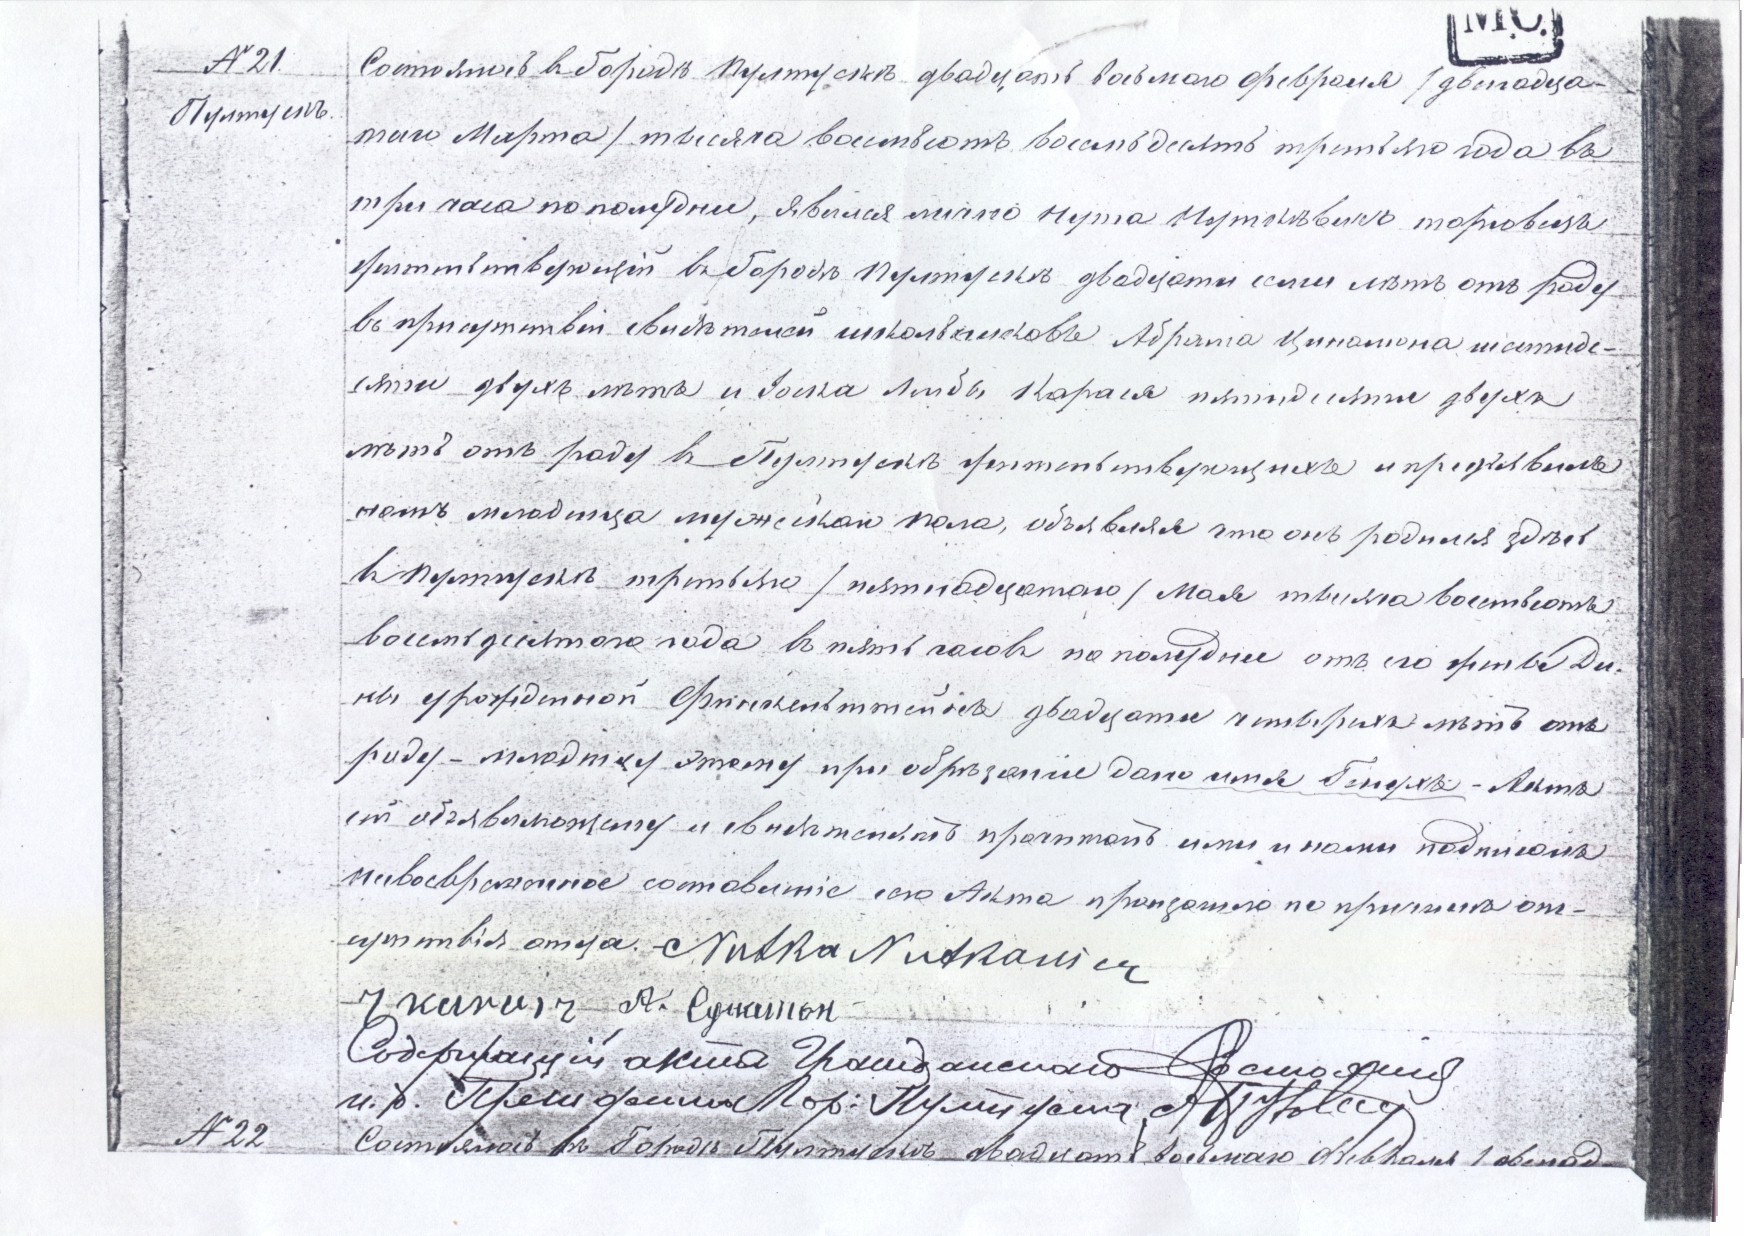 М.С.
№ 21.
Пултускъ.
Состоялось въ Городѣ Пултускѣ двадцать восьмаго февраля /двѣнадца-
таго Марта/ тысяча восемьсотъ восемьдесятъ третьяго года въ
три часа пополудни, явился лично Нута Нуткѣвичъ торговецъ
жительствующій въ Городѣ Пултускѣ двадцати семи лѣтъ отъ роду
въ присутствіи свидѣтелей школьниковъ Абрама Цинамона шестиде-
сяти двухъ лѣтъ и Іоска Лейбы Карася пятидесяти двухъ
лѣтъ отъ роду въ Пултускѣ жительствующихъ и предъявилъ
намъ младенца мужескаго пола, объявляя что онъ родился здѣсь
въ Пултускѣ третьяго /пятнадцатаго/ Мая тысяча восемьсотъ
восемьдесятаго года въ пять часовъ пополудни отъ его жены Ди-
ны урожденной Финкельштейнъ двадцати четырехъ лѣтъ отъ
роду – младенцу этому при обрѣзаніи дано имя Генухъ – Актъ
сей объявляющему и свидѣтелямъ прочитанъ ими и нами подписанъ
несвоевременное составленіе сего Акта произошло по причинѣ от-
сутствія отца. – Nutka Nutkawicz
А.
Содержащій акты Гражданскаго Состоянія
и.д. Президента Гор: Пултуска
№ 22
Состоялось въ Городѣ Пултускѣ двадцать восьмаго февраля /двѣнад-